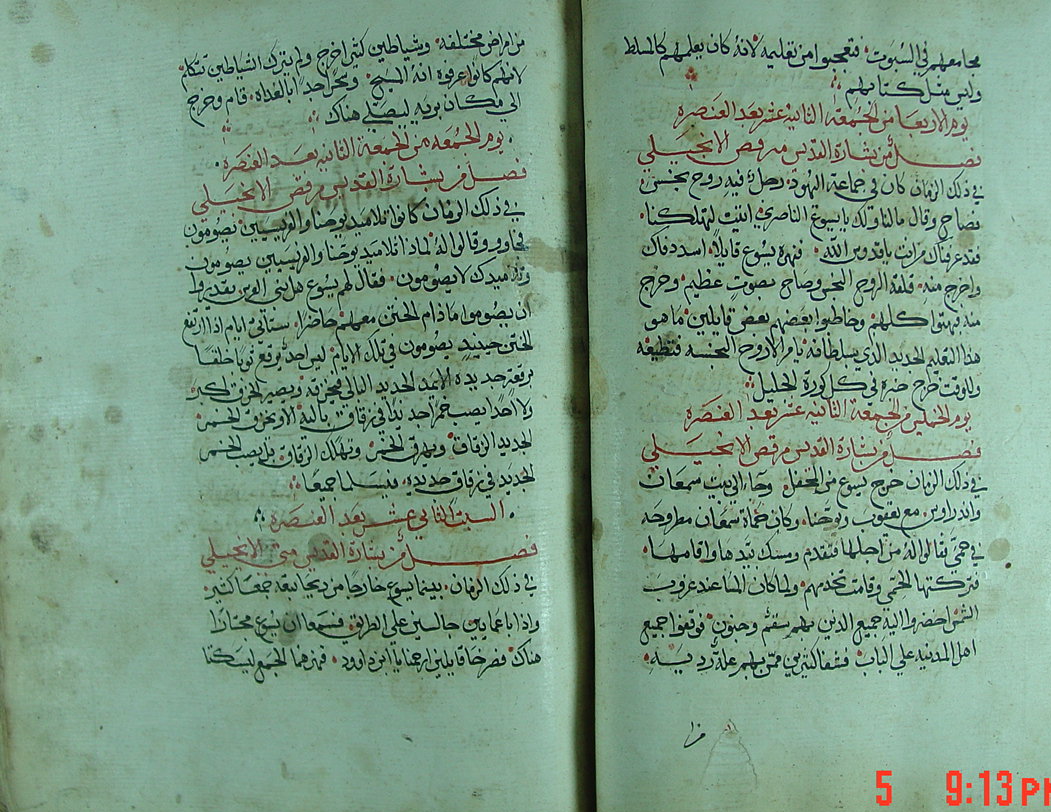 مجامعهم في السبوت. فتعجبوا من تعليمه لانه كان يعلمهم كالمسلط
وليس مثل كتابهم
يوم الاربعا من الجمعة الثانية عشر بعد العنصرة
فصل من بشارة القديس مرقص الانجيلي
في ذلك الزمان كان في جماعة اليهود رجل فيه روح نجس
فصاح وقال مالنا ولك يا يسوع الناصري اتيت لتهلكنا
قد عرفناك من انت يا قدوس الله. فنهره يسوع قايلاً اسدد فاك
واخرج منه. فلقه الروح النجس وصاح بصوت عظيم وخرج
منه فبهتوا كلهم وخاطبوا بعضهم بعض قايلين ما هو
هذا التعليم الجديد الذي بسلطانه يامر الاروح النجسه فتطيعه
وللوقت خرج خبره في كل كورة الجليل
يوم الخميس من الجمعة الثانية عشر بعد العنصرة
فصل من بشارة القديس مرقص الانجيلي
في ذلك الزمان خرج يسوع من المحفل وجاء الى بيت سمعان
واندراوس مع يعقوب ويوحنا. وكان حماة سمعان مطروحه
في حمى فقالوا له من اجلها فتقدم ومسك بيدها واقامها.
فتركتها الحمى وقامت تخدمهم. ولما كان المسا عند غروب
الشمس احضروا اليه جميع الذين بهم سقم وجنون. فوقفوا جميع
اهل المدينه علي الباب. فشفا كثيرين ممن بهم علة رديه.
من امراض مختلفه. وشياطين كثير اخرج ولم يترك الشياطين تتكلم
لانهم كانوا عرفوه انه المسيح. وسحر جدا بالغداة. قام وخرج
الى مكان بريه ليصلي هناك
يوم الجمعه من الجمعة الثانيه بعد العنصرة
فصل من بشارة القديس مرقص الانجيلي
في ذلك الزمان كانوا تلاميد يوحنا والفريسيين يصومون
فجاوو وقالوا له لماذا تلاميد يوحنا والفريسيين يصومون
وتلاميدك لا يصومون. فقال لهم يسوع هل بني العرس يقدروا
ان يصوموا ما دام الختن معهم حاضرا. ستاتي ايام اذا ارتفع
الختن حينيد يصومون في تلك الايام. ليس احد يرقع ثوبا خلقا
برقعة جديده الا يمد الجديد البالى فيخرقه ويصير الخرق اكبر
ولا احدا يصب خمرا جديدا في زقاق بالية الا ويخرق الخمر
الجديد الزقاق ويهرق الخمر وتهلك الزقاق بل يصب الخمر
الجديد في زقاق جديده فيسلما جميعا
السبت الثاني عشر بعد العنصره
فصل من بشارة القديس متى الانجيلي
في ذلك الزمان. بينما يسوع خارجا من ريحا تبعه جمعا كثير
واذا باعمايين جالسين علي الطريق فسمعا ان يسوع مجتازا
هناك. فصرخا قايلين ارحمنا يا ابن داوود. فنهرهما الجمع ليسكتا
5 9:13 PM